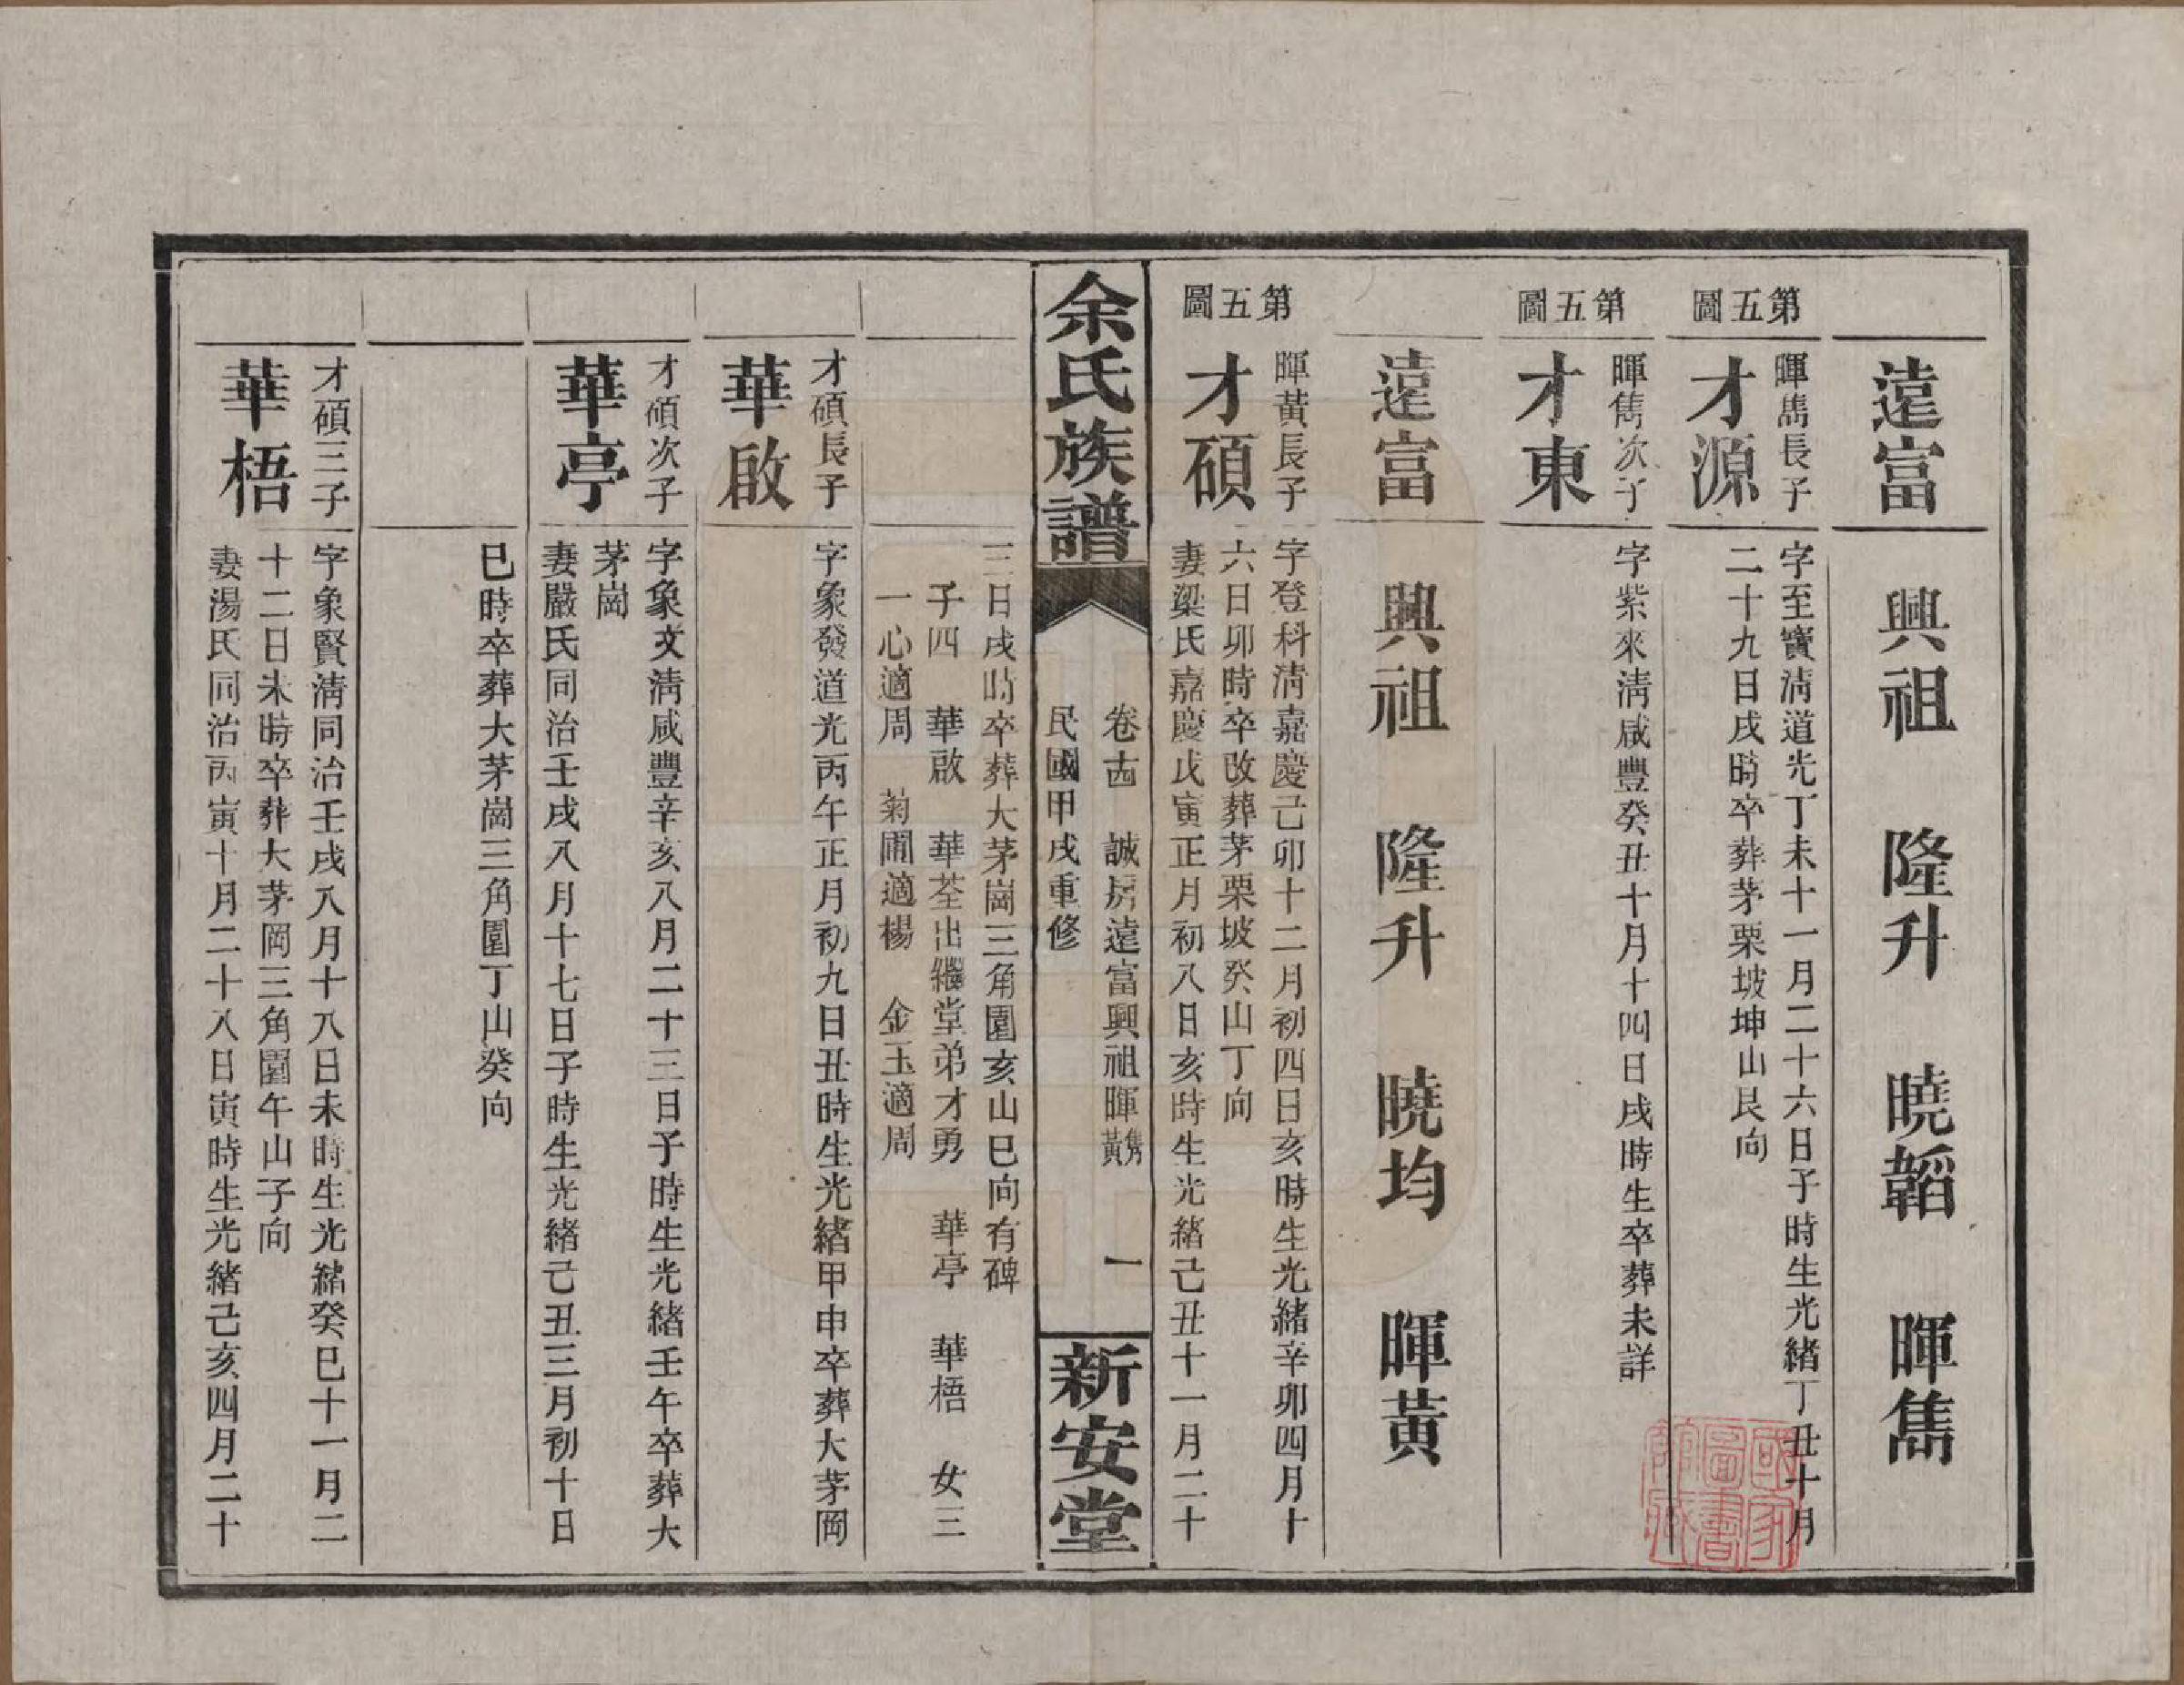 遠富　興祖　隆升　曉韜　暉雋
第五圖
暉雋長子
才源
字至寶清道光丁未十一月二十六日子時生光緒丁丑十月
二十九日戌時卒葬茅栗坡坤山艮向
第五圖
暉雋次子
才東
字紫來清咸豐癸丑十月十四日戌時生卒葬未詳
遠富　興祖　隆升　曉均　暉黃
第五圖
暉黃長子
才碩
字登科清嘉慶己卯十二月初四日亥時生光緒辛卯四月十
六日卯時卒改葬茅栗坡癸山丁向
妻梁氏嘉慶戊寅正月初八日亥時生光緒己丑十一月二十
余氏族譜
卷十四　誠房遠富興祖暉雋黃　一
民國甲戌重修
新安堂
三日戌時卒葬大茅崗三角園亥山巳向有碑
子四　華啟　華荃出繼堂弟才勇　華亭　華梧　女三
一心適周　菊圃適楊　金玉適周
才碩長子
華啟
字象發道光丙午正月初九日丑時生光緒甲申卒葬大茅岡
才碩次子
華亭
字象文清咸豐辛亥八月二十三日子時生光緒壬午卒葬大
茅崗
妻嚴氏同治壬戌八月十七日子時生光緒己丑三月初十日
巳時卒葬大茅崗三角園丁山癸向
才碩三子
華梧
字象賢清同治壬戌八月十八日未時生光緒癸巳十一月二
十二日未時卒葬大茅岡三角園午山子向
妻湯氏同治丙寅十月二十八日寅時生光緒己亥四月二十
國家圖書館藏